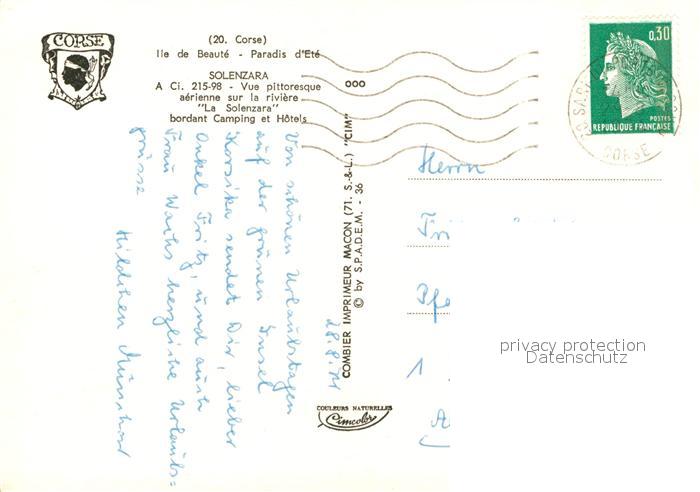 CORSE
(20. Corse)
Ile de Beauté - Paradis d'Eté
SOLENZARA
A Ci. 215-98 - Vue pittoresque
aérienne sur la rivière
"La Solenzara"
bordant Camping et Hôtels
000
0,30
POSTES
REPUBLIQUE FRANÇAISE
CORSE
28.8.71
Von schönen Urlaubstagen
auf der grünen Insel
Korsika sendet Dir, lieber
Onkel Fritz, und auch
Frau Wachs herzliche Urlaubs=
grüsse
Hildchen
COMBIER IMPRIMEUR MACON (71. S.-&-L.) "CIM"
© by S.P.A.D.E.M. - 36
COULEURS NATURELLES
Cimcolor
Herrn
Fri
Pfo
1
A
privacy protection
Datenschutz